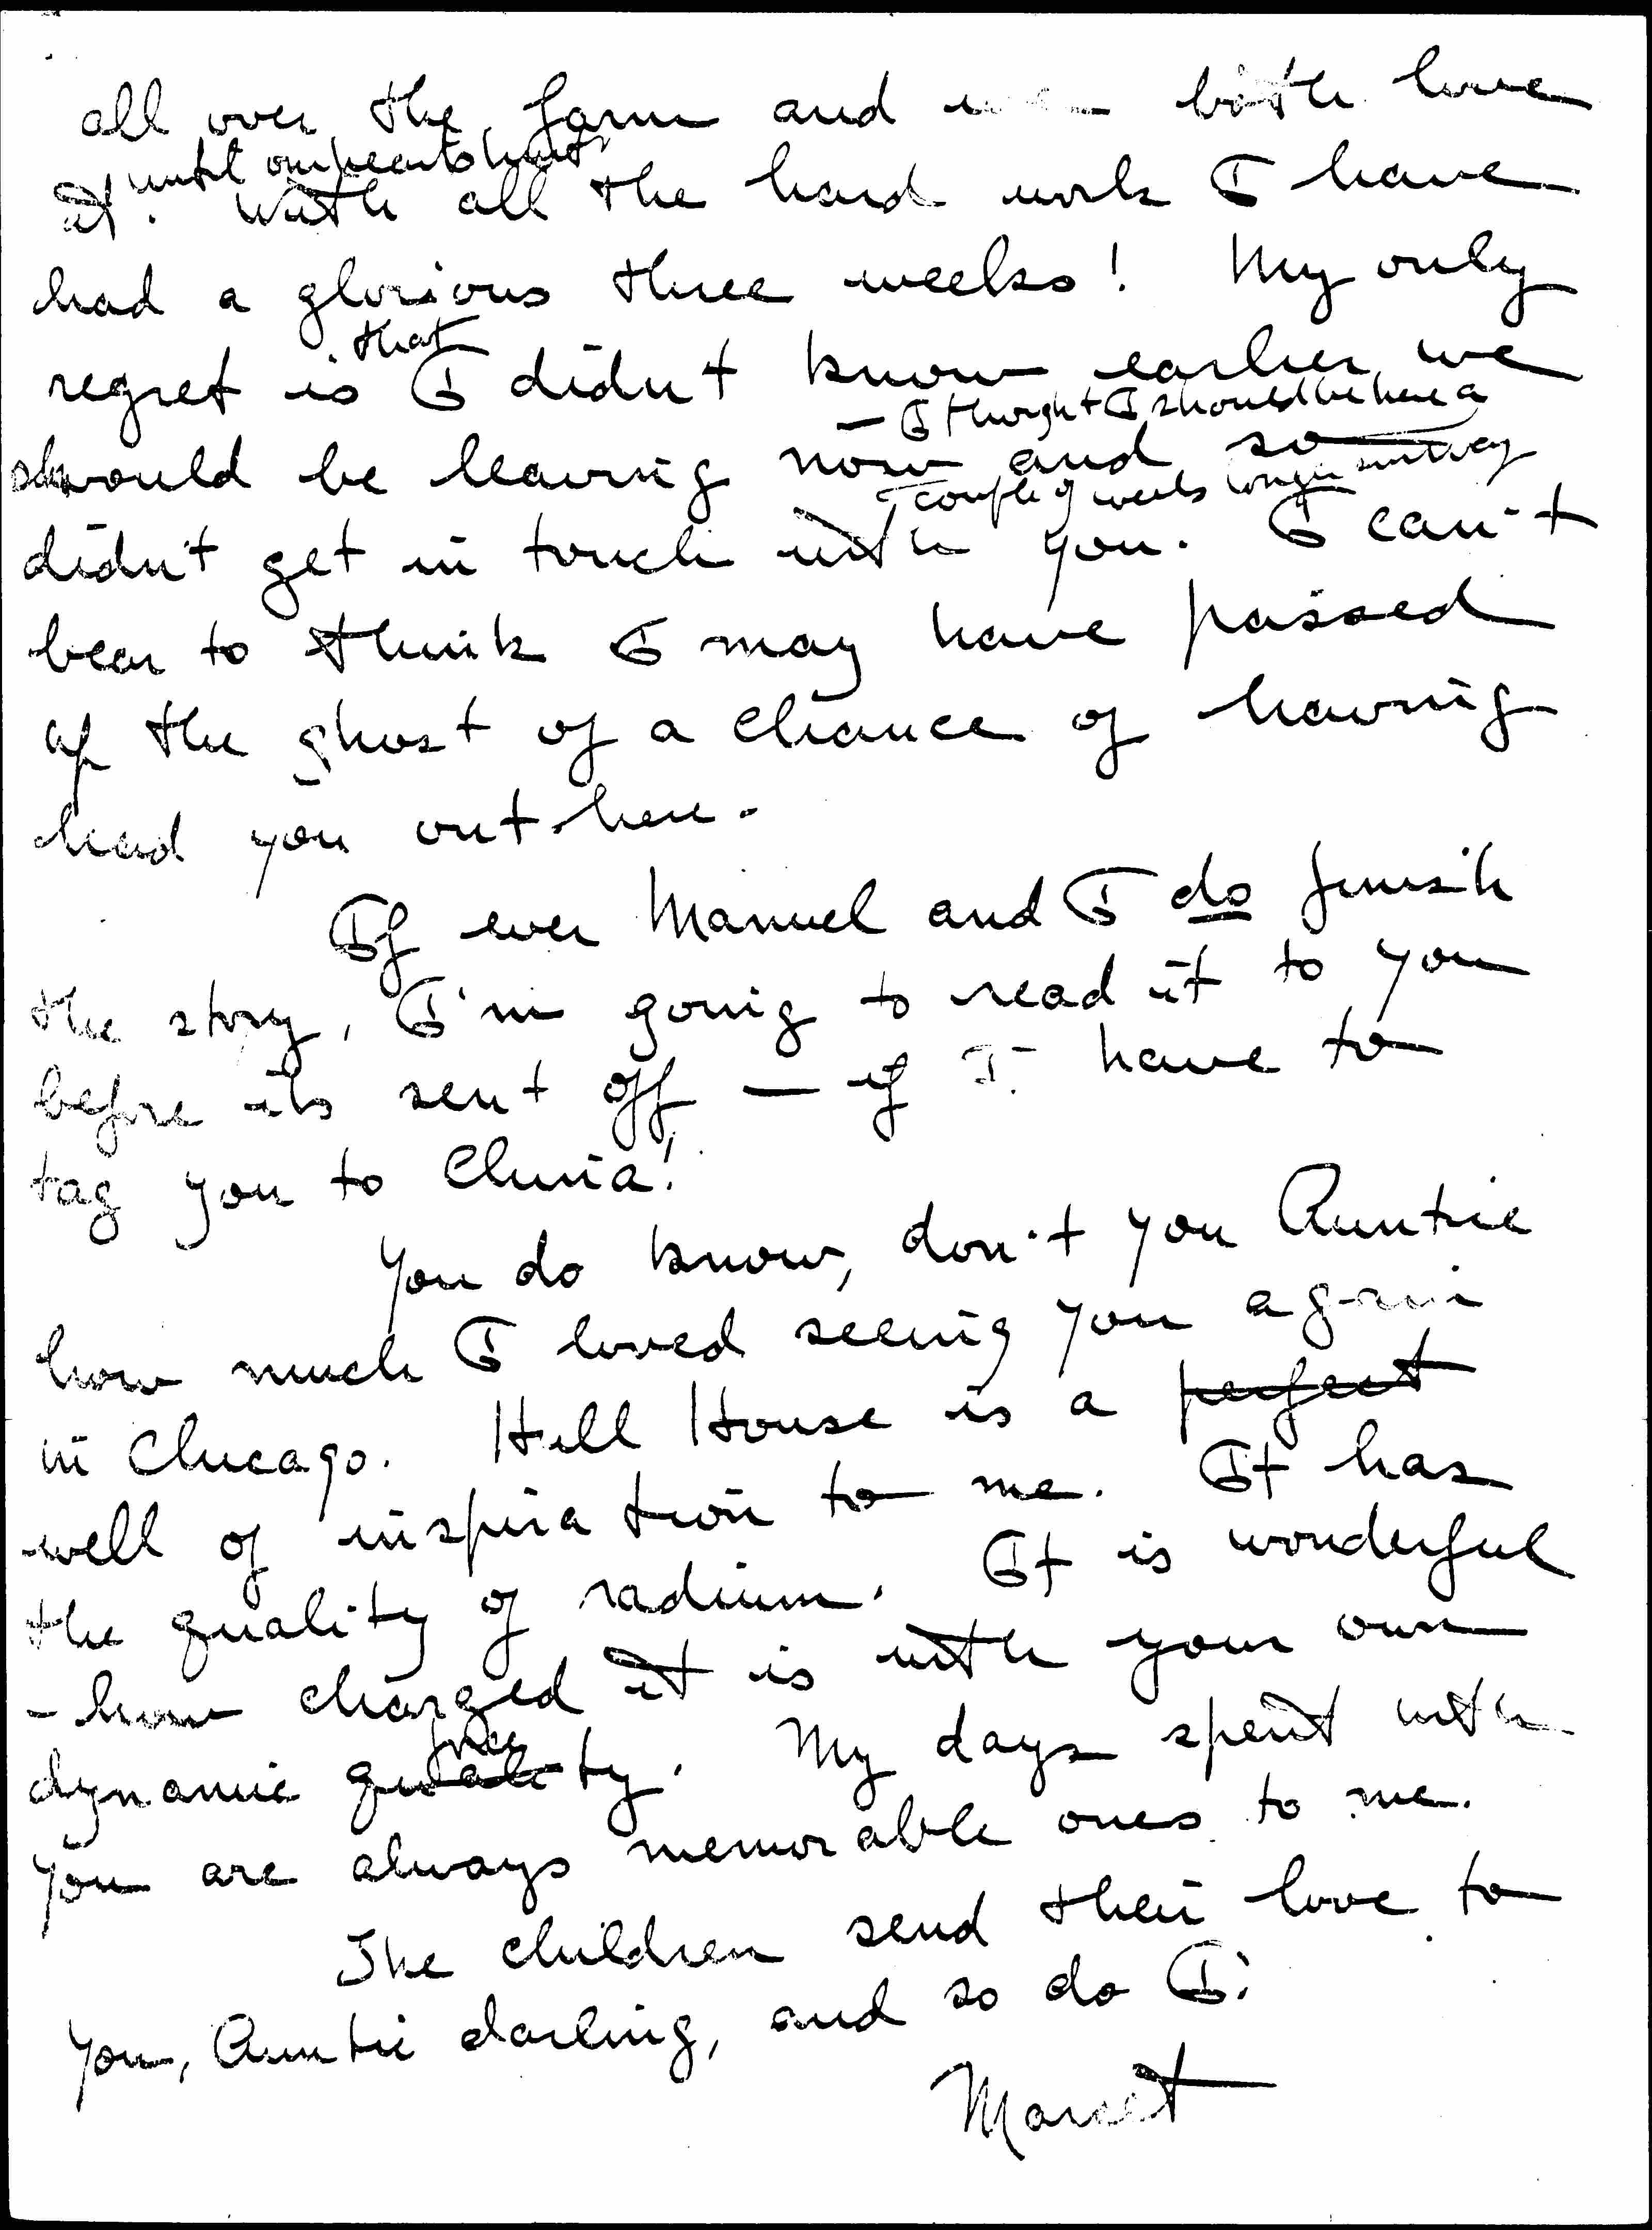 all over the farm and we both love
until our hearts hurt
it. With all the hard work I have
had a glorious three weeks! My only
that
regret is I didn't know earlier we
— I thought I should be here a
should be leaving now and so
couple of weeks longer anyway
didn't get in touch with you. I can't
bear to think I may have passed
up the ghost of a chance of having
had you out here.
If ever Manuel and I do finish
the story, I'm going to read it to you
before its sent off — if I have to
tag you to China!
You do know, don't you Auntie
how much I loved seeing you again
in Chicago. Hull House is a perfect
well of inspiration to me. It has
the quality of radium. It is wonderful
- how charged it is with your own
force
dynamic quality. My days spent with
you are always memorable ones to me.
The children send their love to
you, Auntie darling, and so do I.
Marcet